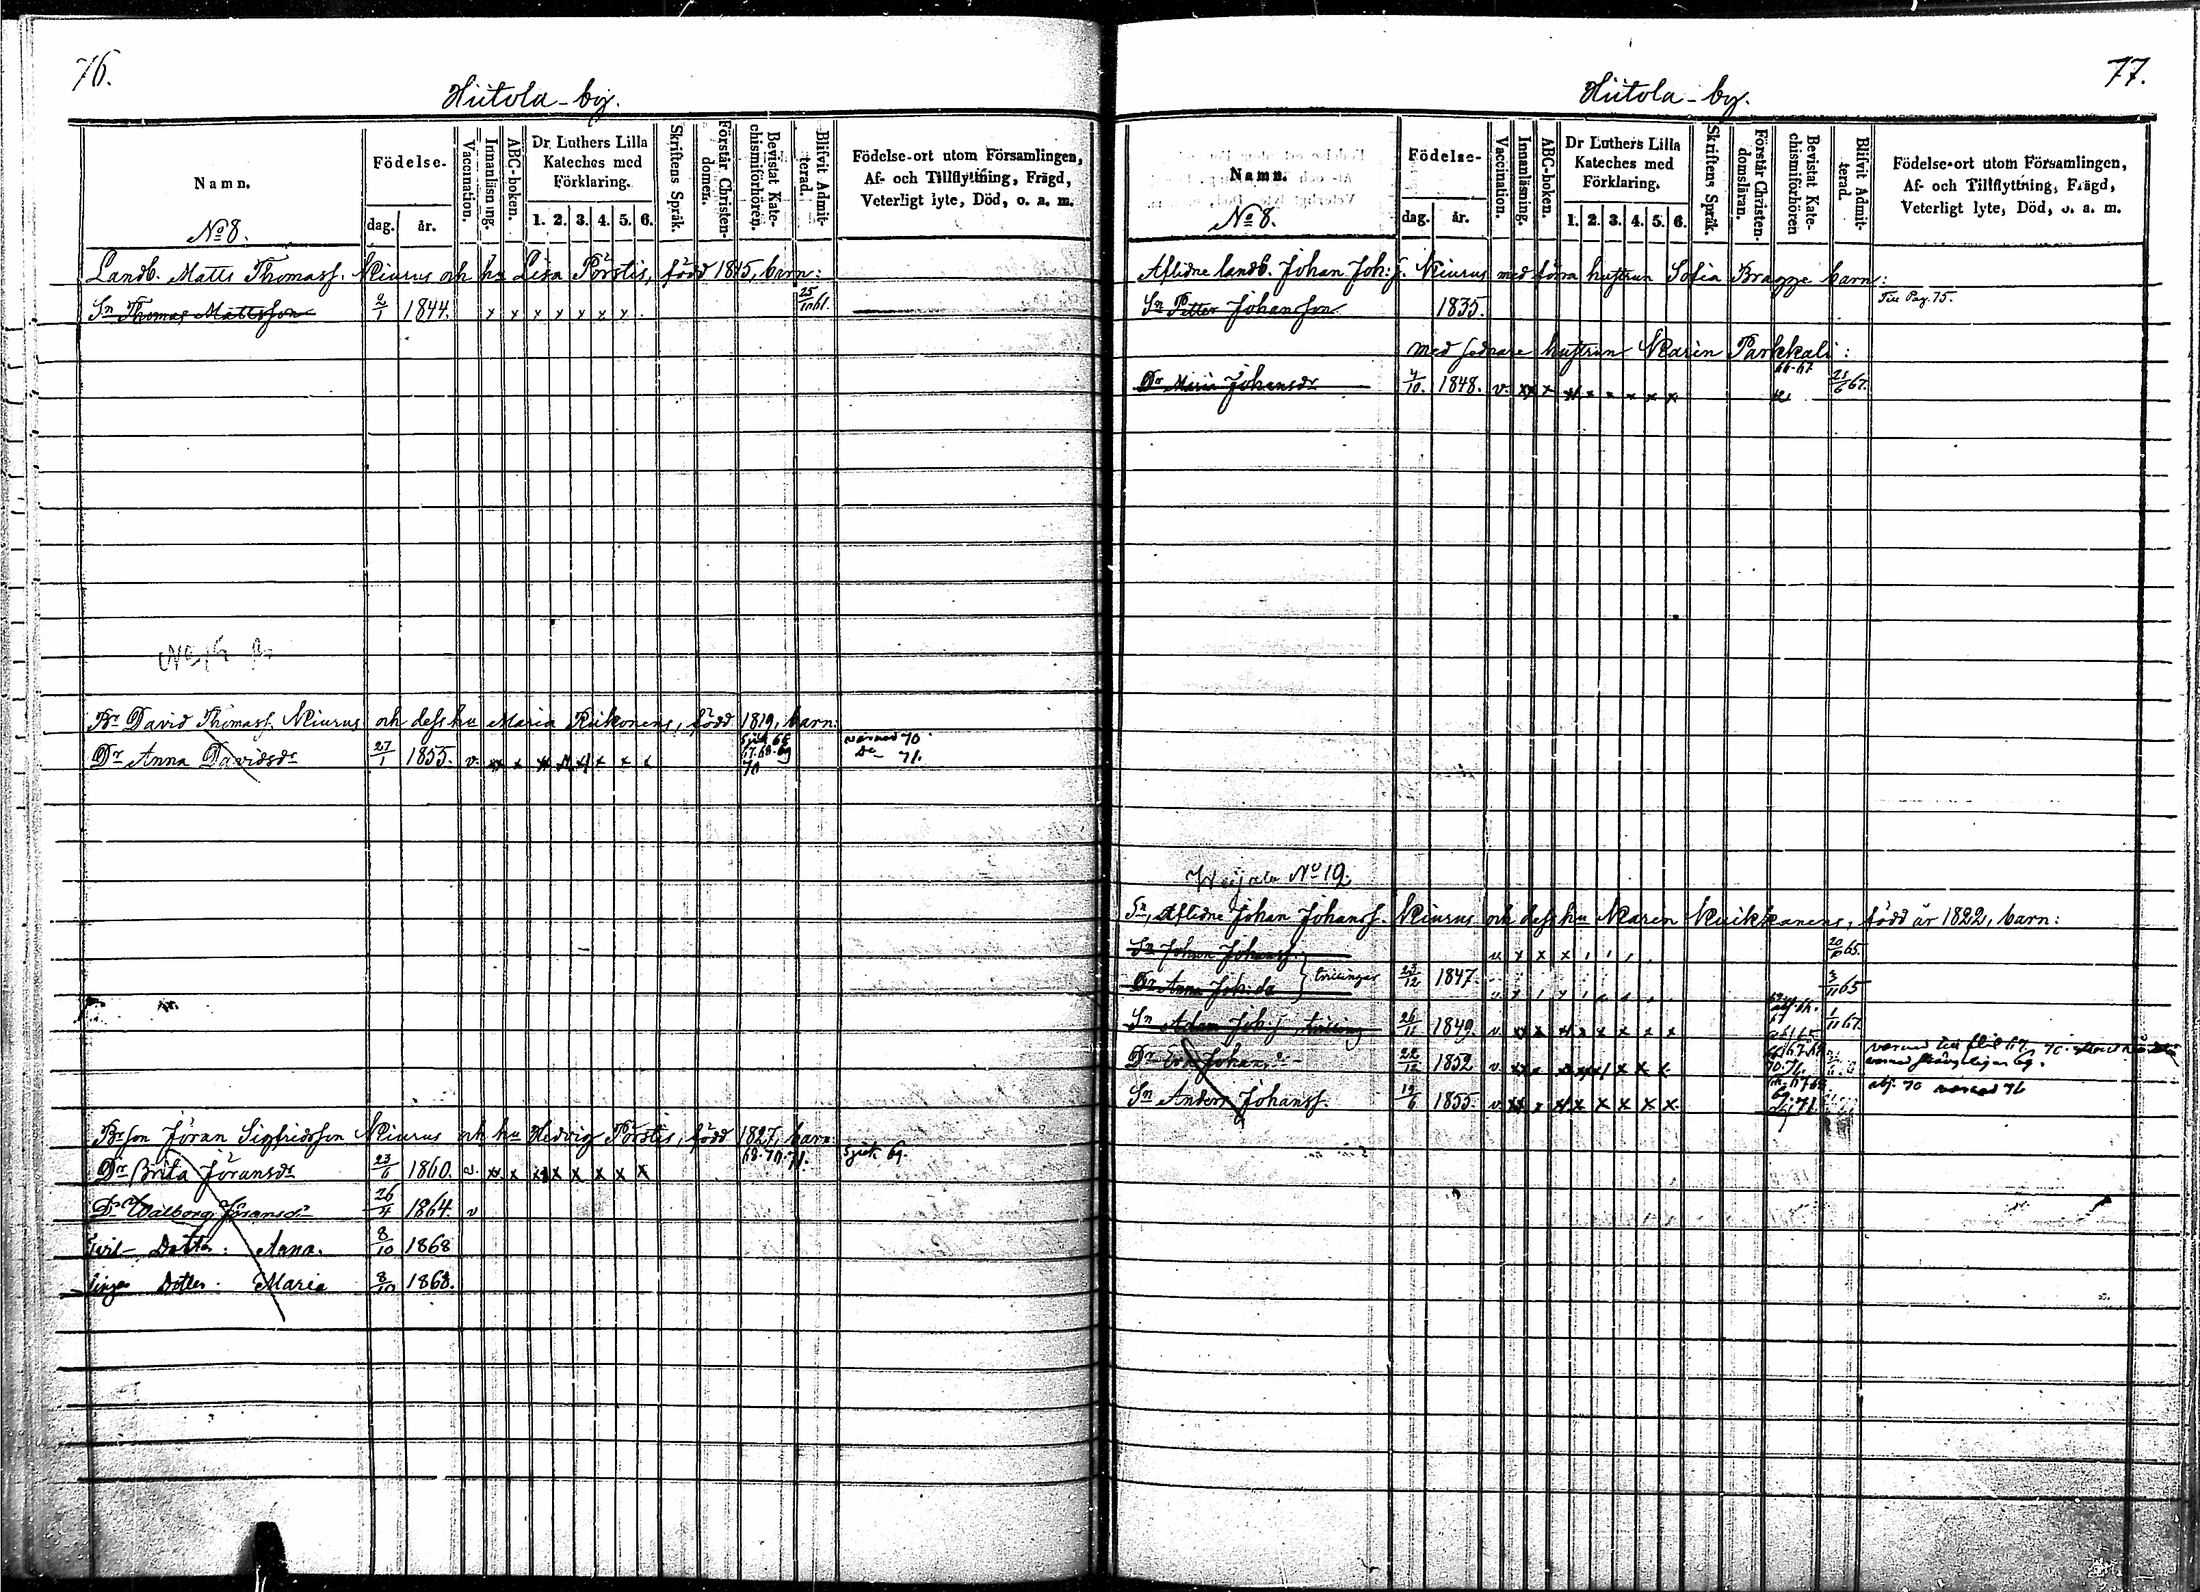 76.
Hiitola-by.
Namn.
Födelse-
dag. år.
Vaccination.
Innanläsning.
ABC-boken.
Dr. Luthers Lilla
Kateches med
Förklaring.
1. 2. 3. 4. 5. 6.
Skriftens Språk.
Förstår Christen-
domen.
Bevistat Kate-
chismiförhören.
Blifvit Admit-
terad.
Födelse-ort utom Församlingen,
Af- och Tillflyttning, Frägd,
Veterligt lyte, Död, o. a. m.
No 8.
Landb. Matts Thomass. Kiurus och hu Lisa Pörstis, född 1815, barn:
Sn Thomas Mattsson 2/1 1844. x x x x x x x 25/10 61.
Br David Thomass. Kiurus och dess hu Maria Riikonens, född 1819, barn:
Dr Anna Davidsdr 27/1 1855. v. 67. 68. 69 70 70 71.
Brson Jöran Sigfridsson Kiurus och hu Hedvig Pörstis, född 1827, barn
Dr Brita Jöransdr 23/6 1860. v. 68. 70. 71. Sjuk 69.
Dr Walborg Jöransdr 26/4 1864. v
Tvil- Dotter: Anna. 8/10 1868
lingar Dotter: Maria 8/10 1868.
77.
Hiitola-by.
Namn.
Födelse-
dag. år.
Vaccination.
Innanläsning.
ABC-boken.
Dr Luthers Lilla
Kateches med
Förklaring.
1. 2. 3. 4. 5. 6.
Skriftens Språk.
Förstår Christen-
domsläran.
Bevistat Kate-
chismiförhören
Blifvit Admit-
terad.
Födelse-ort utom Församlingen,
Af- och Tillflyttning, Frägd,
Veterligt lyte, Död, o. a. m.
No 8.
Aflidne landb. Johan Joh:s. Kiurus med förra hustrun Sofia Bragge barn:
Sn Petter Johansson 1835. Till Pag. 75.
med sednare hustrun Karin Parkkali:
Dr Maria Johansdr 7/10. 1848. v. 66-67 67.
Weijala No 12.
Sn, Aflidne Johan Johanss. Kiurus och dess hu Karen Kuikkanens, född år 1822, barn:
Sn Johan Johanss. 65.
Dr Anna Joh:dr } tvillingar 23/12 1847. 65
Sn Adam Joh:s tvilling 26/11 1849. v. 1/11 67.
Dr Johans 22/12 1852 v. 70. 71.
Sn Anders Johanss. 1855. v. 71. 70 71